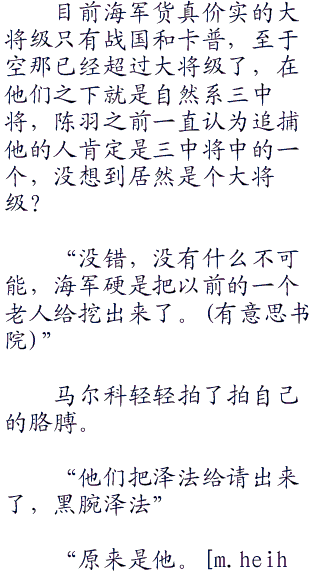 目前海军货真价实的大
将级只有战国和卡普，至于
空那已经超过大将级了，在
他们之下就是自然系三中
将，陈羽之前一直认为追捕
他的人肯定是三中将中的一
个，没想到居然是个大将
级？
“没错，没有什么不可
能，海军硬是把以前的一个
老人给挖出来了。(有意思书
院)”
马尔科轻轻拍了拍自己
的胳膊。
“他们把泽法给请出来
了，黑腕泽法”
“原来是他。[m.heih